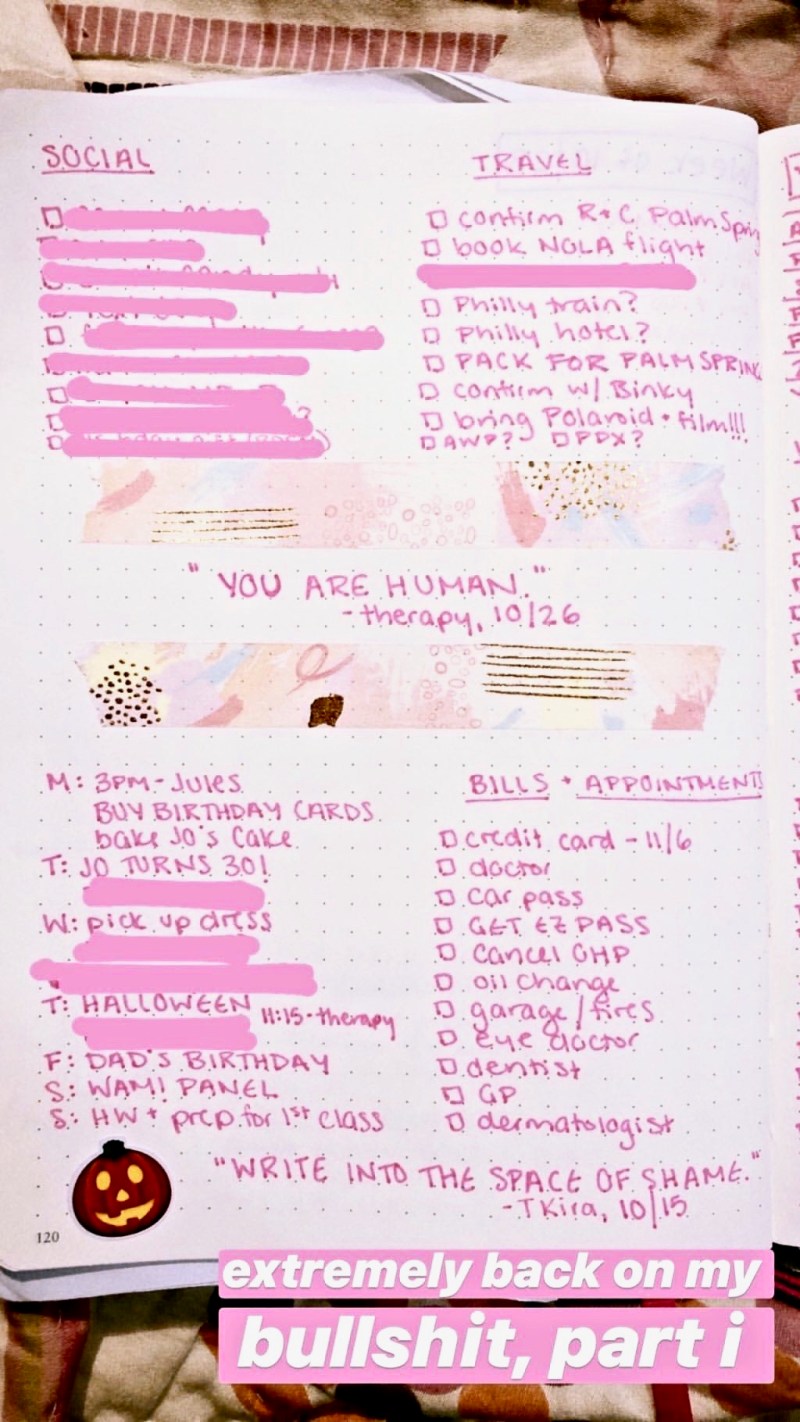 SOCIAL
TRAVEL
confirm R+C Palm Spring
book NOLA flight
Philly train?
Philly hotel?
PACK FOR PALM SPRING
confirm w/ Binky
bring Polaroid + film!!!
AWP? PDX?
"YOU ARE HUMAN."
-therapy, 10/26
M: 3PM- Jules
BUY BIRTHDAY CARDS
bake Jo's Cake
T: JO TURNS 30!
W: pick up dress
T: HALLOWEEN 11:15-therapy
F: DAD'S BIRTHDAY
S: WAM! PANEL
S: HW + prep for 1st class
BILLS + APPOINTMENTS
credit card - 11/6
doctor
car pass
GET EZ PASS
cancel GHP
oil change
garage/tires
eye doctor
dentist
GP
dermatologist
"WRITE INTO THE SPACE OF SHAME."
-TKira, 10/15
120
extremely back on my
bullshit, part i